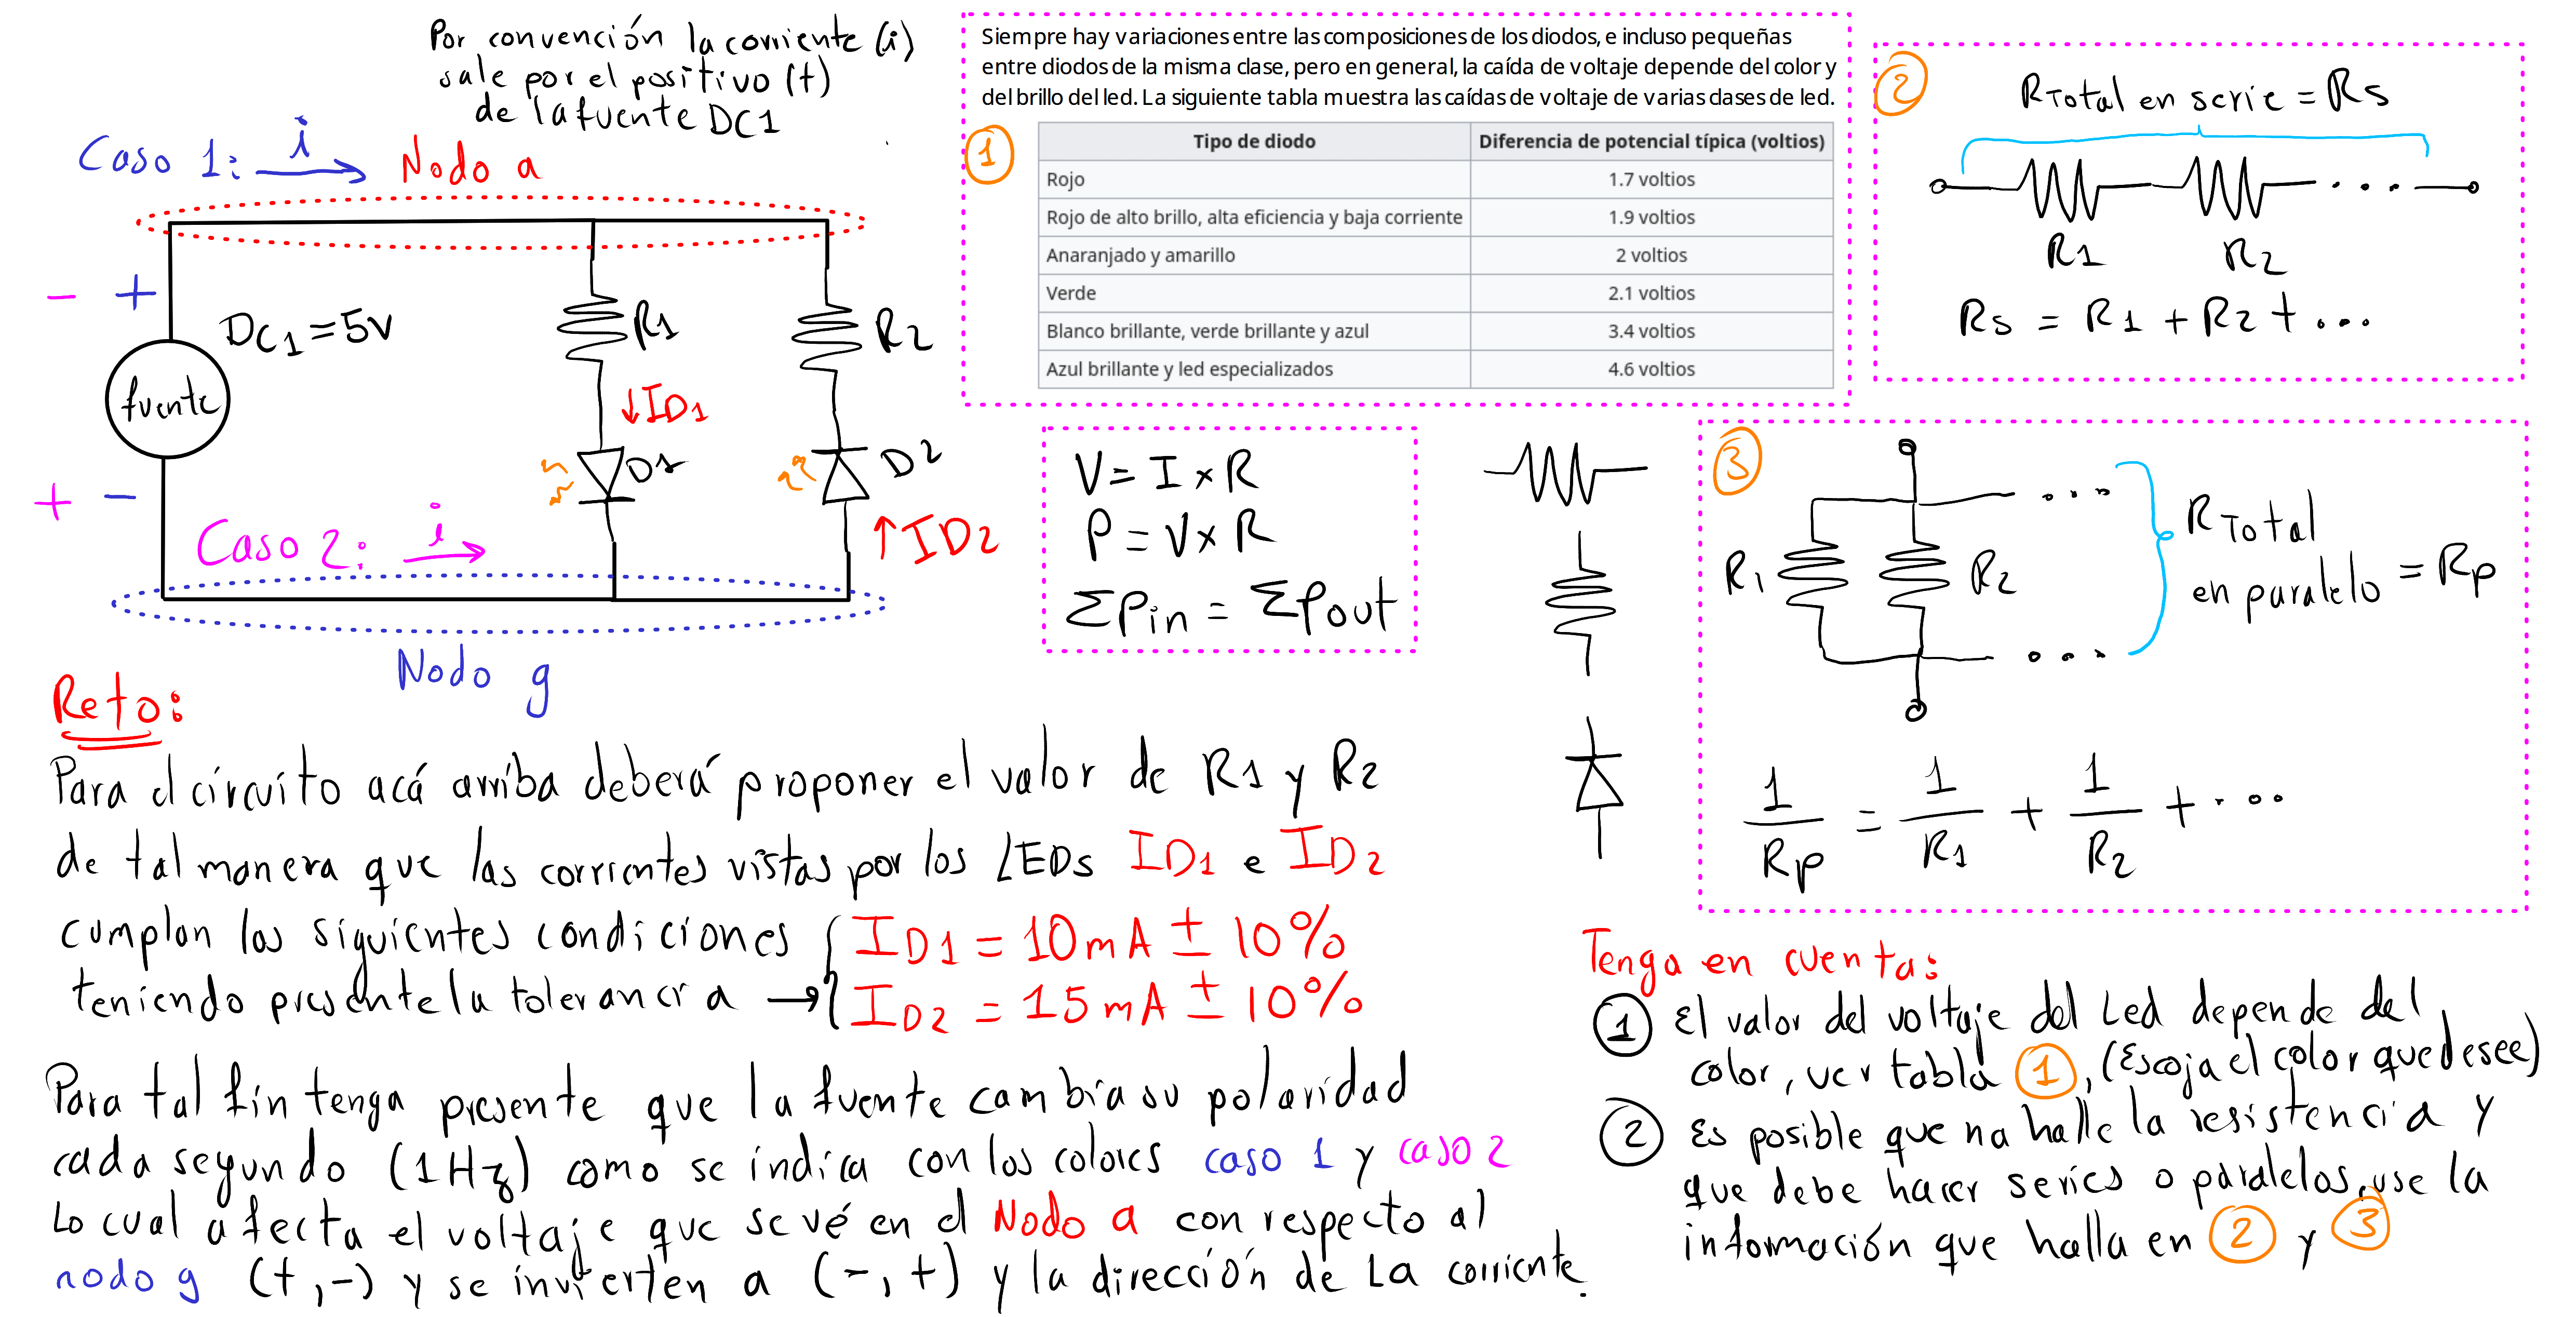 Por convención la corriente (i)
sale por el positivo (+)
de la fuente DC1
Caso 1: i
Nodo a
- +
DC1 = 5v
fuente
+ -
R1
R2
↓ID1
D1
D2
↑ID2
Caso 2: i
Nodo g
Siempre hay variaciones entre las composiciones de los diodos, e incluso pequeñas
entre diodos de la misma clase, pero en general, la caída de voltaje depende del color y
del brillo del led. La siguiente tabla muestra las caídas de voltaje de varias clases de led.
1
Tipo de diodo Diferencia de potencial típica (voltios)
Rojo 1.7 voltios
Rojo de alto brillo, alta eficiencia y baja corriente 1.9 voltios
Anaranjado y amarillo 2 voltios
Verde 2.1 voltios
Blanco brillante, verde brillante y azul 3.4 voltios
Azul brillante y led especializados 4.6 voltios
2
RTotal en serie = Rs
R1 R2
Rs = R1 + R2 + ...
V = I x R
P = V x R
ΣPin = ΣPout
3
R1 R2
RTotal
en paralelo = Rp
1/Rp = 1/R1 + 1/R2 + ...
Reto:
Para el circuito acá arriba deberá proponer el valor de R1 y R2
de tal manera que las corrientes vistas por los LEDs ID1 e ID2
cumplan las siguientes condiciones { ID1 = 10mA ± 10%
teniendo presente la tolerancia → { ID2 = 15mA ± 10%
Para tal fin tenga presente que la fuente cambia su polaridad
cada segundo (1Hz) como se indica con los colores caso 1 y caso 2
Lo cual afecta el voltaje que se vé en el Nodo a con respecto al
nodo g (+,-) y se invierten a (-,+) y la dirección de la corriente.
Tenga en cuenta:
1 El valor del voltaje del Led depende del
color, ver tabla 1, (Escoja el color que desee)
2 Es posible que na halle la resistencia y
que debe hacer series o paralelos, use la
información que halla en 2 y 3